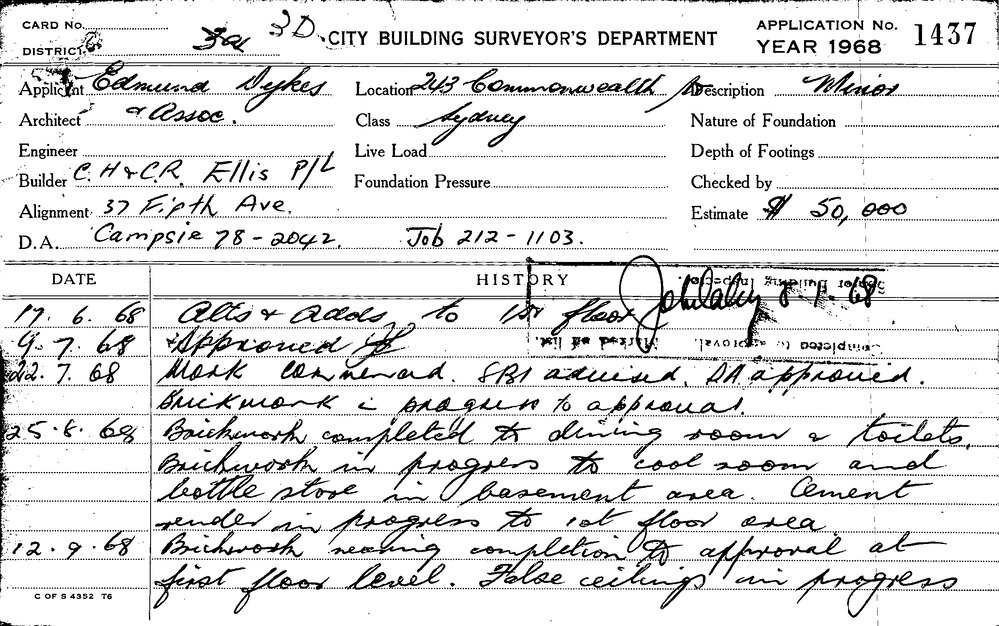 CARD No.
DISTRICT
3a 3D.
CITY BUILDING SURVEYOR'S DEPARTMENT
APPLICATION No. 1437
YEAR 1968
Applicant Edmund Dykes
Location 243 Commonwealth
Description Minor
Architect & Assoc.
Class Sydney
Nature of Foundation
Engineer
Live Load
Depth of Footings
Builder C.H & C.R. Ellis P/L
Foundation Pressure
Checked by
Alignment 37 Fifth Ave.
Estimate $ 50,000
D.A. Campsie 78-2042. Job 212-1103.
DATE HISTORY
Senior Building Inspector.
8.7.68
17.6.68 Alts & Adds to 1st floor
Completed to approval. Marked off list.
9.7.68 Approved
22.7.68 Work commenced. SBI advised. DA approved.
Brickwork in progress to approval.
25.8.68 Brickwork completed to dining room & toilets.
Brickwork in progress to cool room and
bottle store in basement area. Cement
render in progress to 1st floor area
12.9.68 Brickwork nearing completion to approval at
first floor level. False ceilings in progress
C OF S 4352 T6